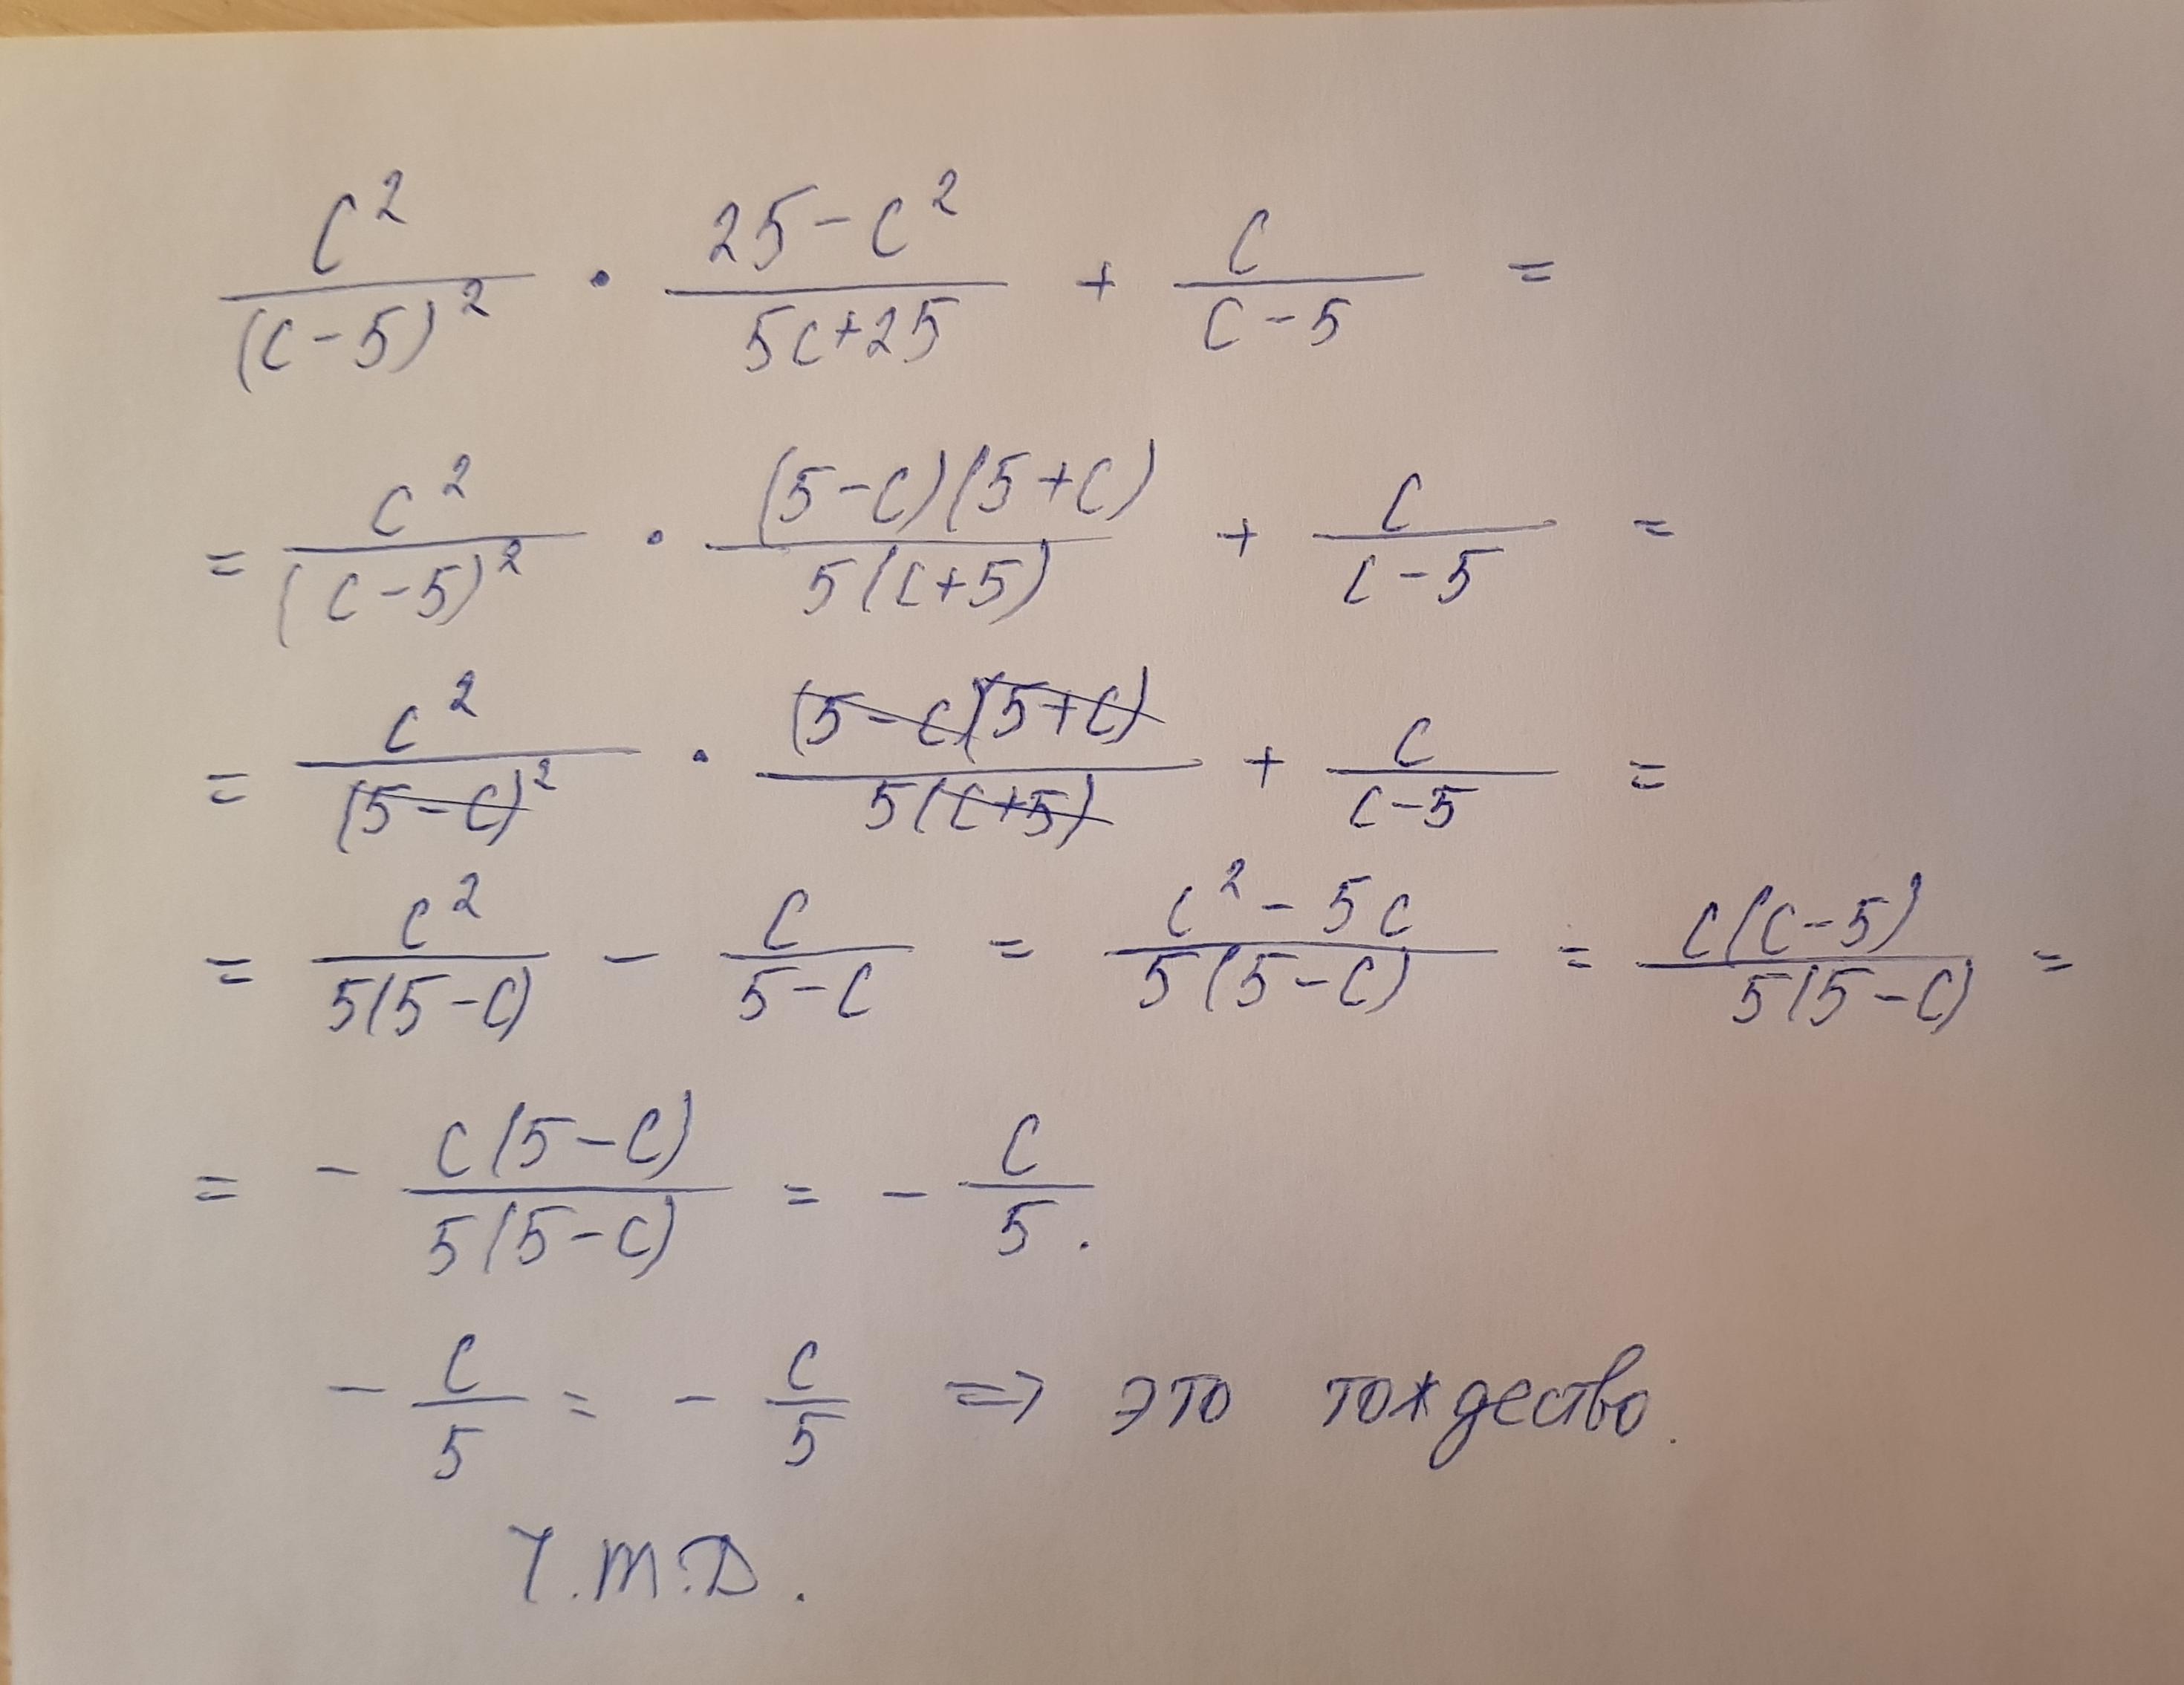 c²/(c-5)² · (25-c²)/(5c+25) + c/(c-5) =
= c²/(c-5)² · (5-c)(5+c)/5(c+5) + c/(c-5) =
= c²/(5-c)² · (5-c)(5+c)/5(c+5) + c/(c-5) =
= c²/5(5-c) - c/(5-c) = (c²-5c)/5(5-c) = c(c-5)/5(5-c) =
= - c(5-c)/5(5-c) = - c/5.
- c/5 = - c/5 => это тождество.
Ч.т.д.